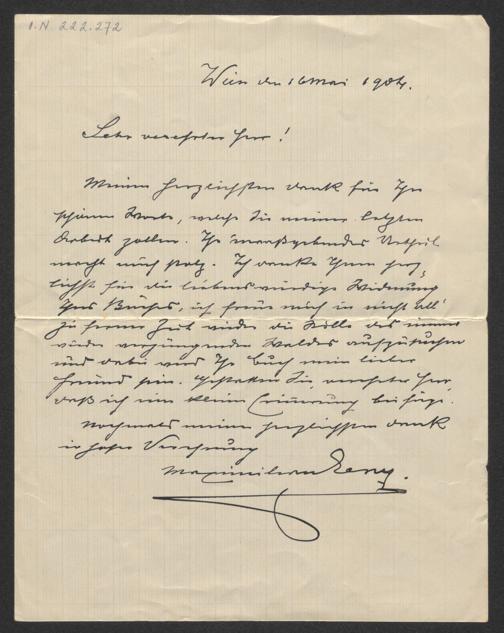 I.N. 222.272
Wien den 16 Mai 1904.
Sehr verehrter Herr!
Meinen herzlichsten Dank für Ihre
schönen Worte, welche Sie meiner letzten
Arbeit zollen. Ihr maaßgebendes Urtheil
macht mich stolz. Ich danke Ihnen herz-
lichst für die liebenswürdige Widmung
Ihres Buches, ich freue mich in nicht all'
zu ferner Zeit wieder die Stille des immer
wieder verjüngenden Waldes aufzusuchen
und dabei wird Ihr Buch mein lieber
Freund sein. Gestatten Sie, verehrter Herr,
daß ich eine kleine Erinnerung beifüge.
Nochmals meinen herzlichsten Dank
in hoher Verehrung
Maximilian